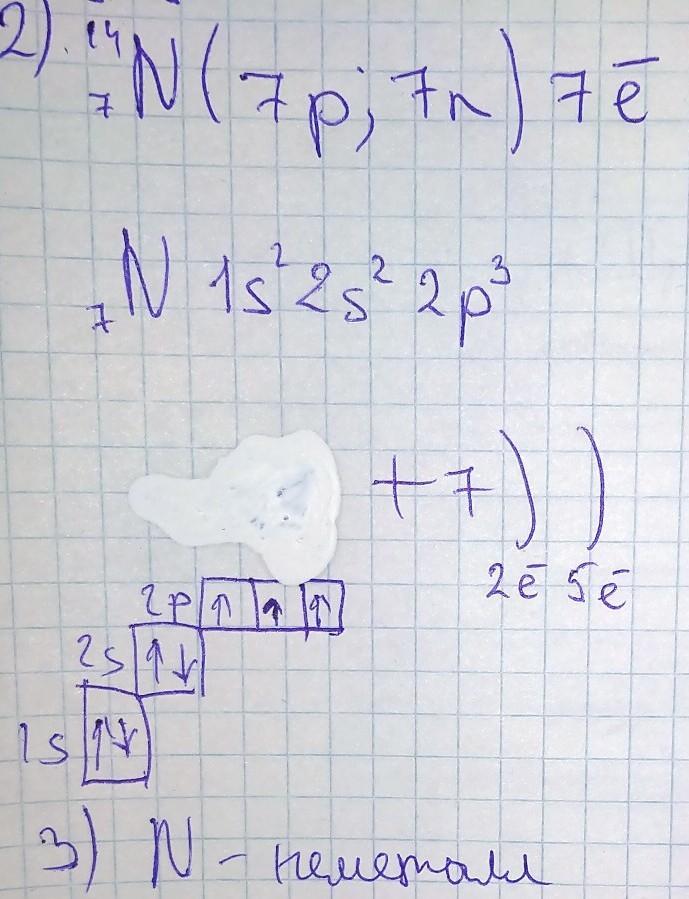 2). ¹⁴₇N (7p; 7n) 7ē
₇N 1s² 2s² 2p³
+7 ) )
2ē 5ē
2p ↑ ↑ ↑
2s ↑↓
1s ↑↓
3) N - неметалл